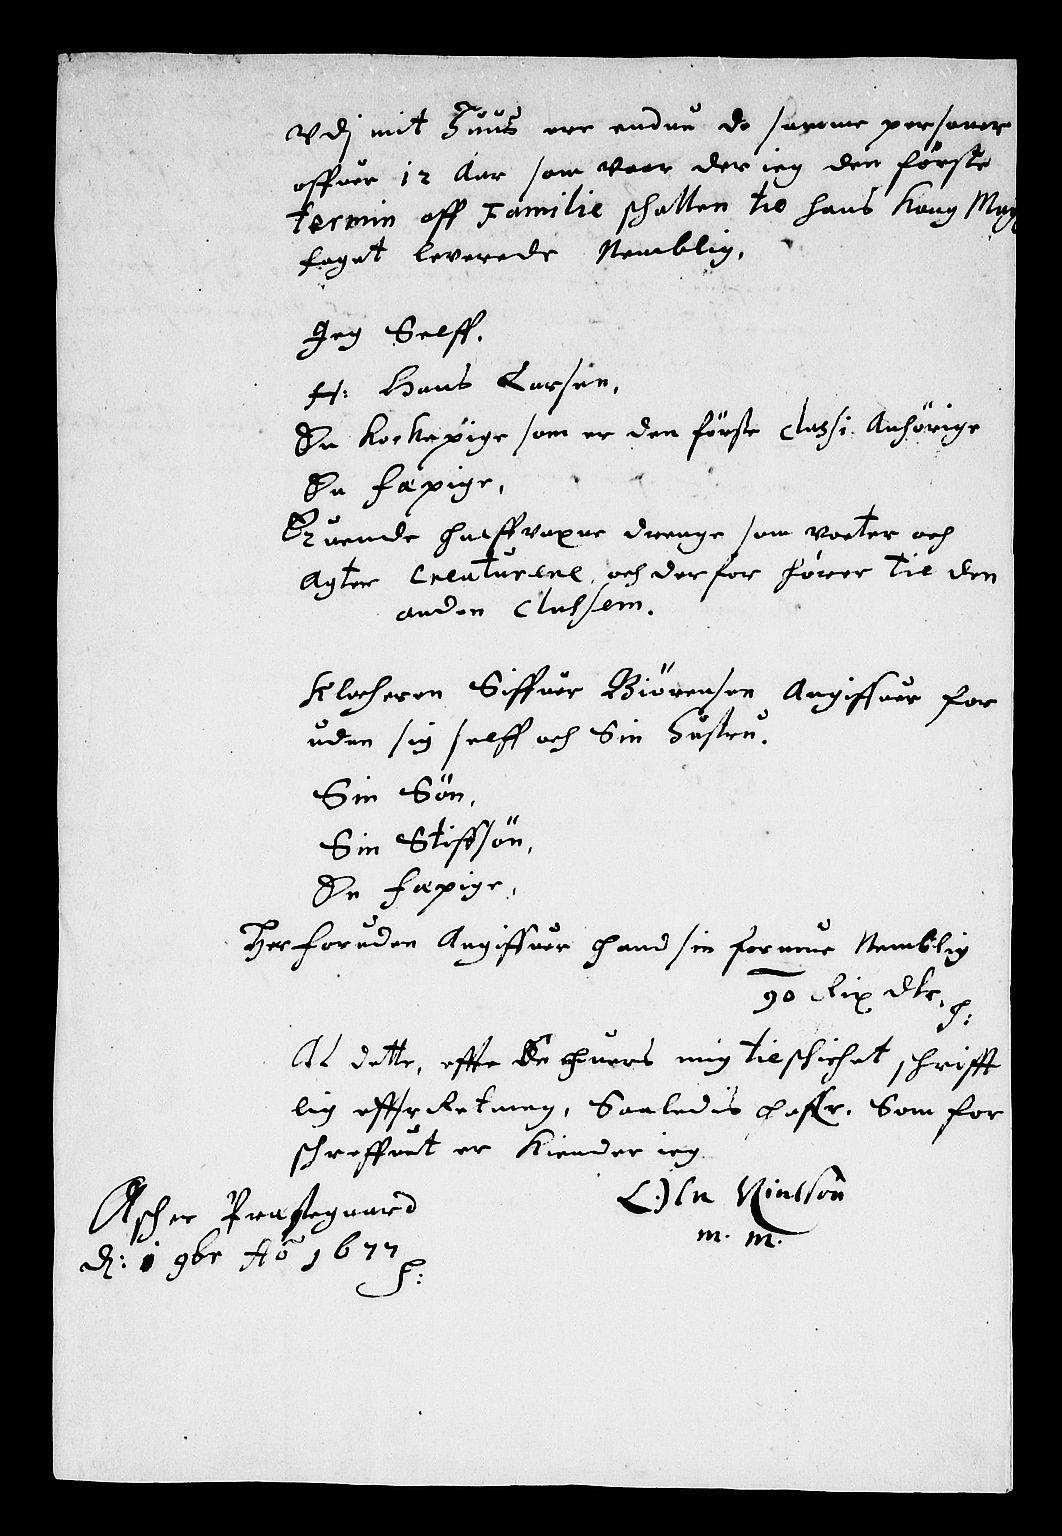 Vdj mit Huus ere endnu de samme personer
offuer 12 Aar som vaar der ieg den förste
termin aff Familie schatten til hans Kong May
foget leverede Nemblig,
Jeg Selff.
H: Hans Larsen,
En Kockepige som er den förste Classi Anhörige
En fæpige,
Tuende halffvoxne drenge som vocter och
Agter Creaturene, och derfor hörer til den
anden Classem.
Klocheren Siffuer Biörensen Angiffuer for
uden sig selff och Sin Hustru.
Sin Sön,
Sin Stiffsön,
En fæpige,
Herforuden Angiffuer hand sin formue Nemblig
90 Rix dlr.
At dette, effter mig tilschichet schrifft
lig Saaledis som for
schreffuet er Kiender ieg
Ascher Præstegaard
d: 1 9br Ao 1677
m. m.